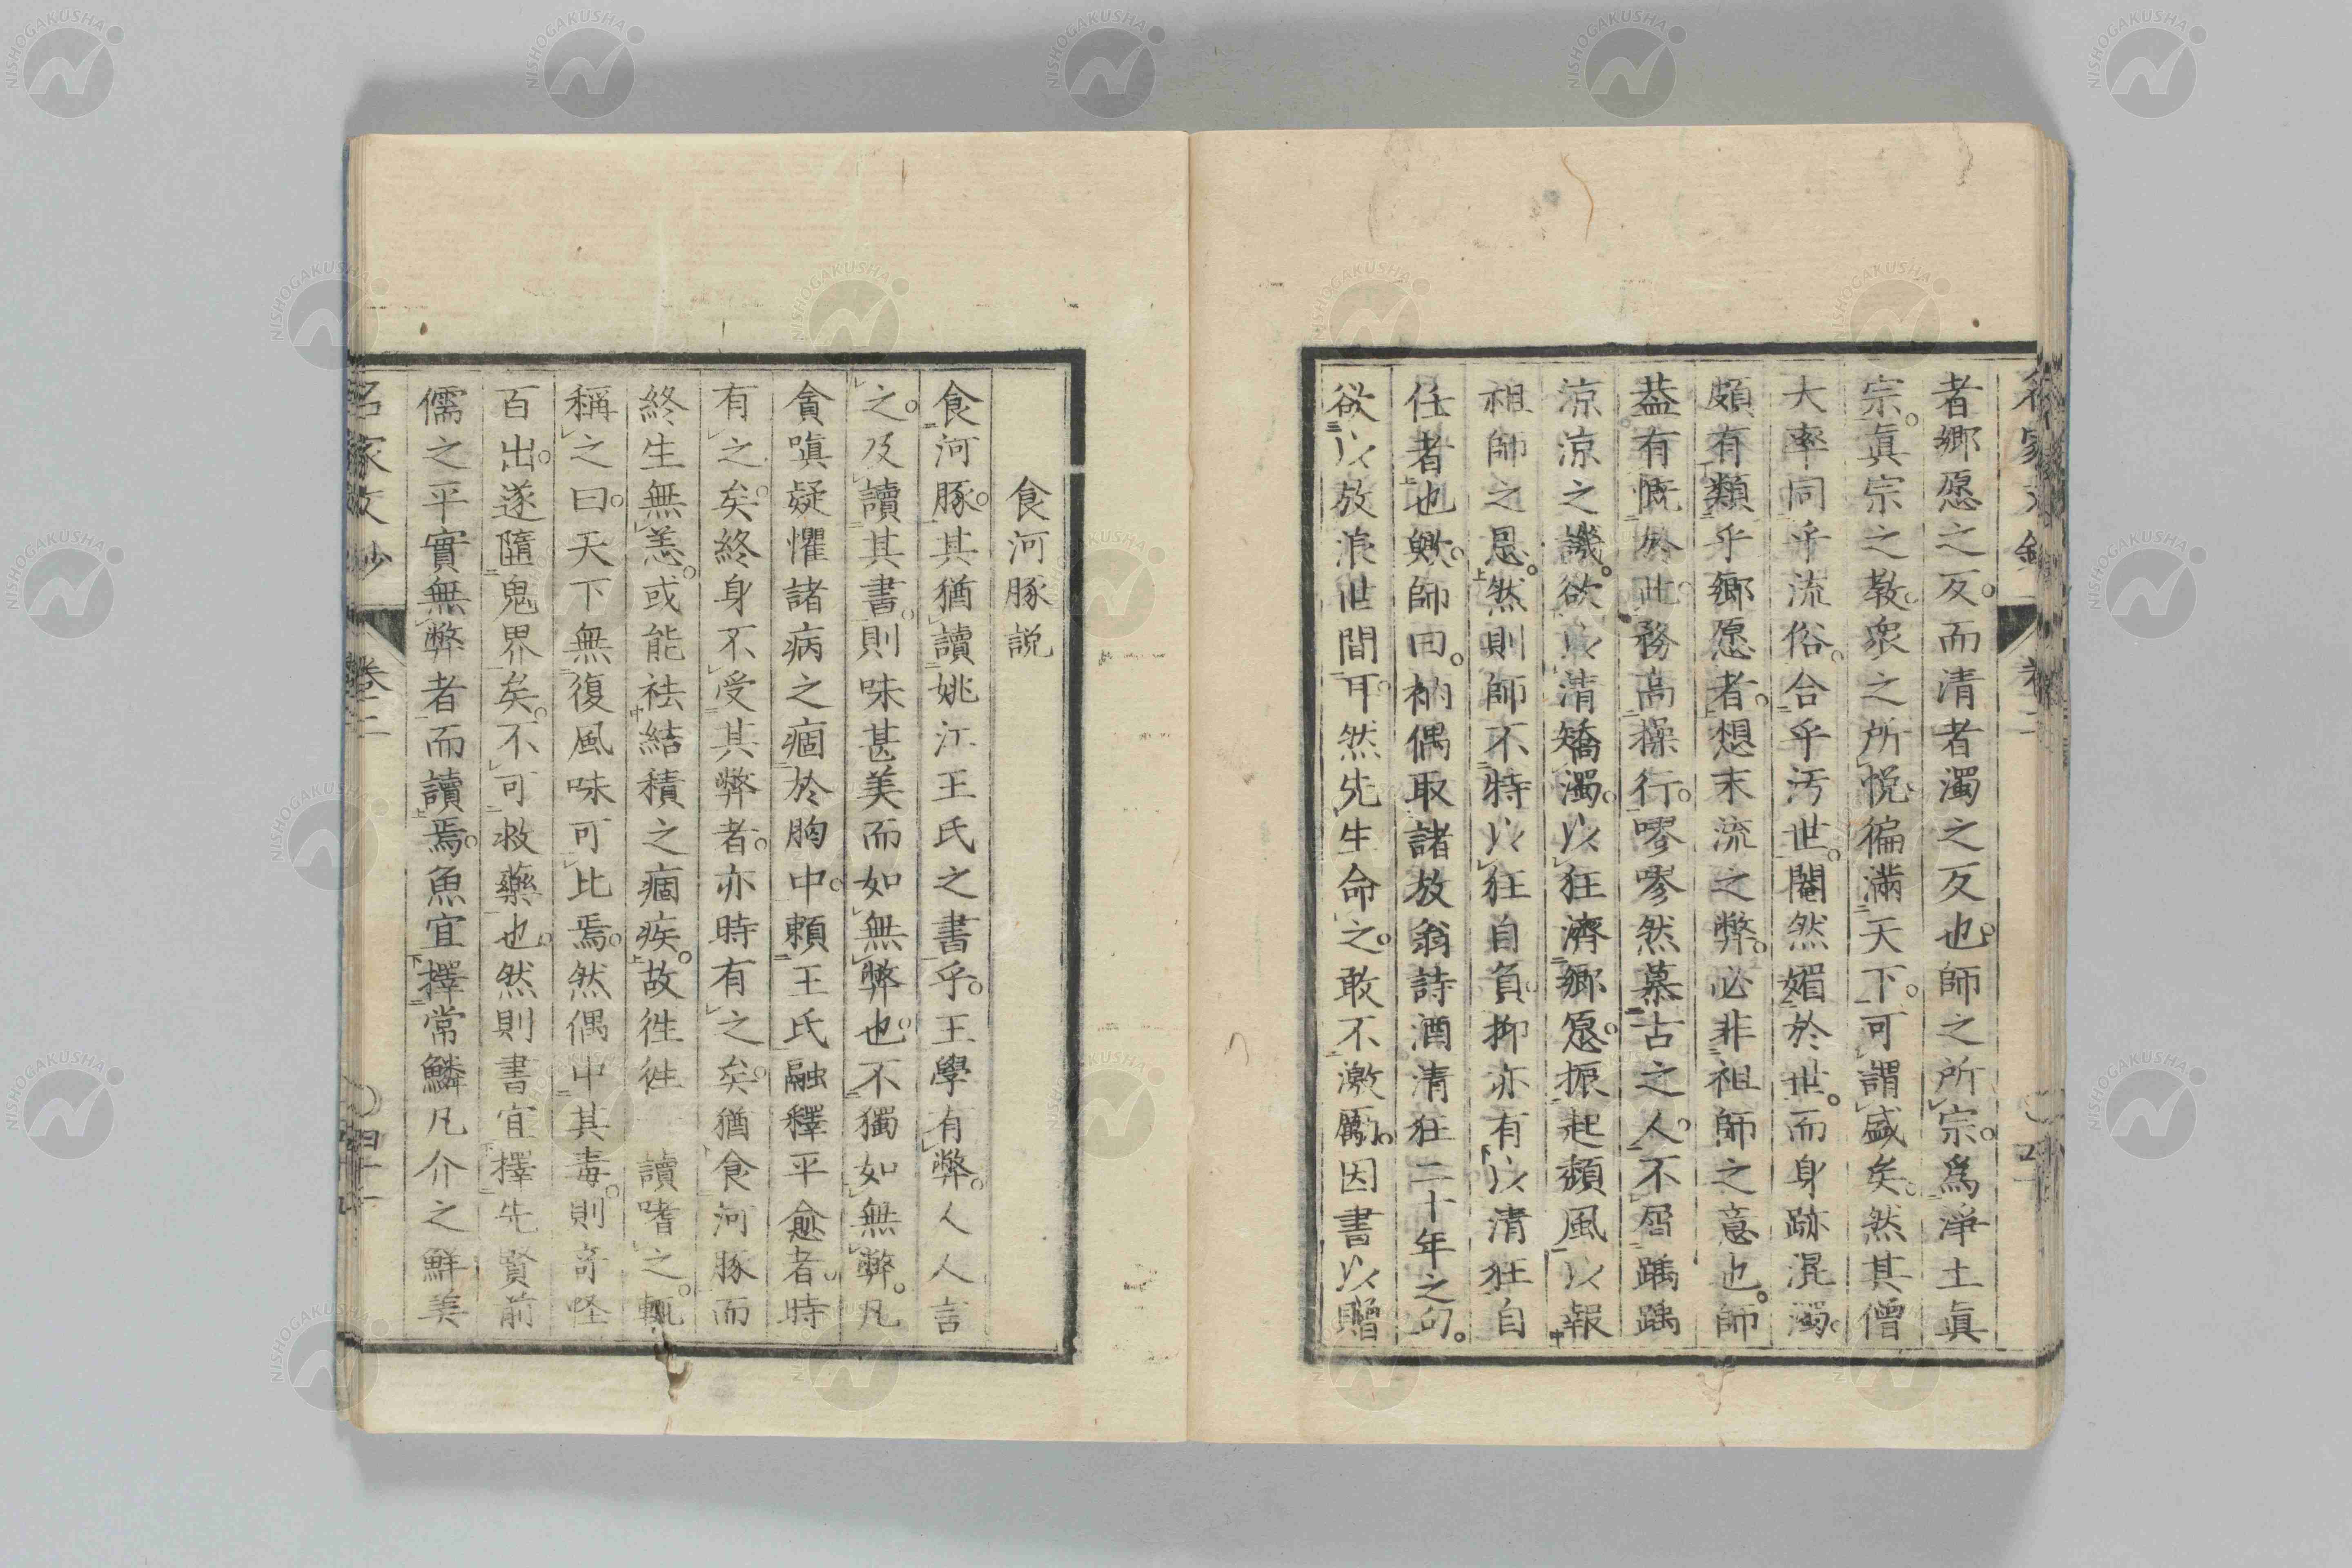 者鄉愿之反而清者濁之反也師之所宗爲淨土眞
宗眞宗之教衆之所悦徧滿天下可謂盛矣然其僧
大率同乎流俗合乎汚世閹然媚於世而身跡混濁
頗有類乎鄉愿者想末流之弊必非祖師之意也師
葢有慨於此務高操行嘐嘐然慕古之人不屑踽踽
涼涼之譏欲以清矯濁以狂濟鄉愿振起頽風以報
祖師之恩然則師不特以狂自負抑亦有以清狂自
任者也歟師曰衲偶取諸放翁詩酒清狂二十年之句
欲以放浪世間耳然先生命之敢不激厲因書以贈
食河豚説
食河豚其猶讀姚江王氏之書乎王學有弊人人言
之及讀其書則味甚美而如無弊也不獨如無弊凡
貪嗔疑懼諸病之痼於胸中頼王氏融釋平愈者時
有之矣終身不受其弊者亦時有之矣猶食河豚而
終生無恙或能袪結積之痼疾故徃徃讀嗜之輒
稱之曰天下無復風味可比焉然偶中其毒則奇怪
百出遂隨鬼界矣不可救藥也然則書宜擇先賢前
儒之平實無弊者而讀焉魚宜擇常鱗凡介之鮮美
名家文鈔 卷二 四十一